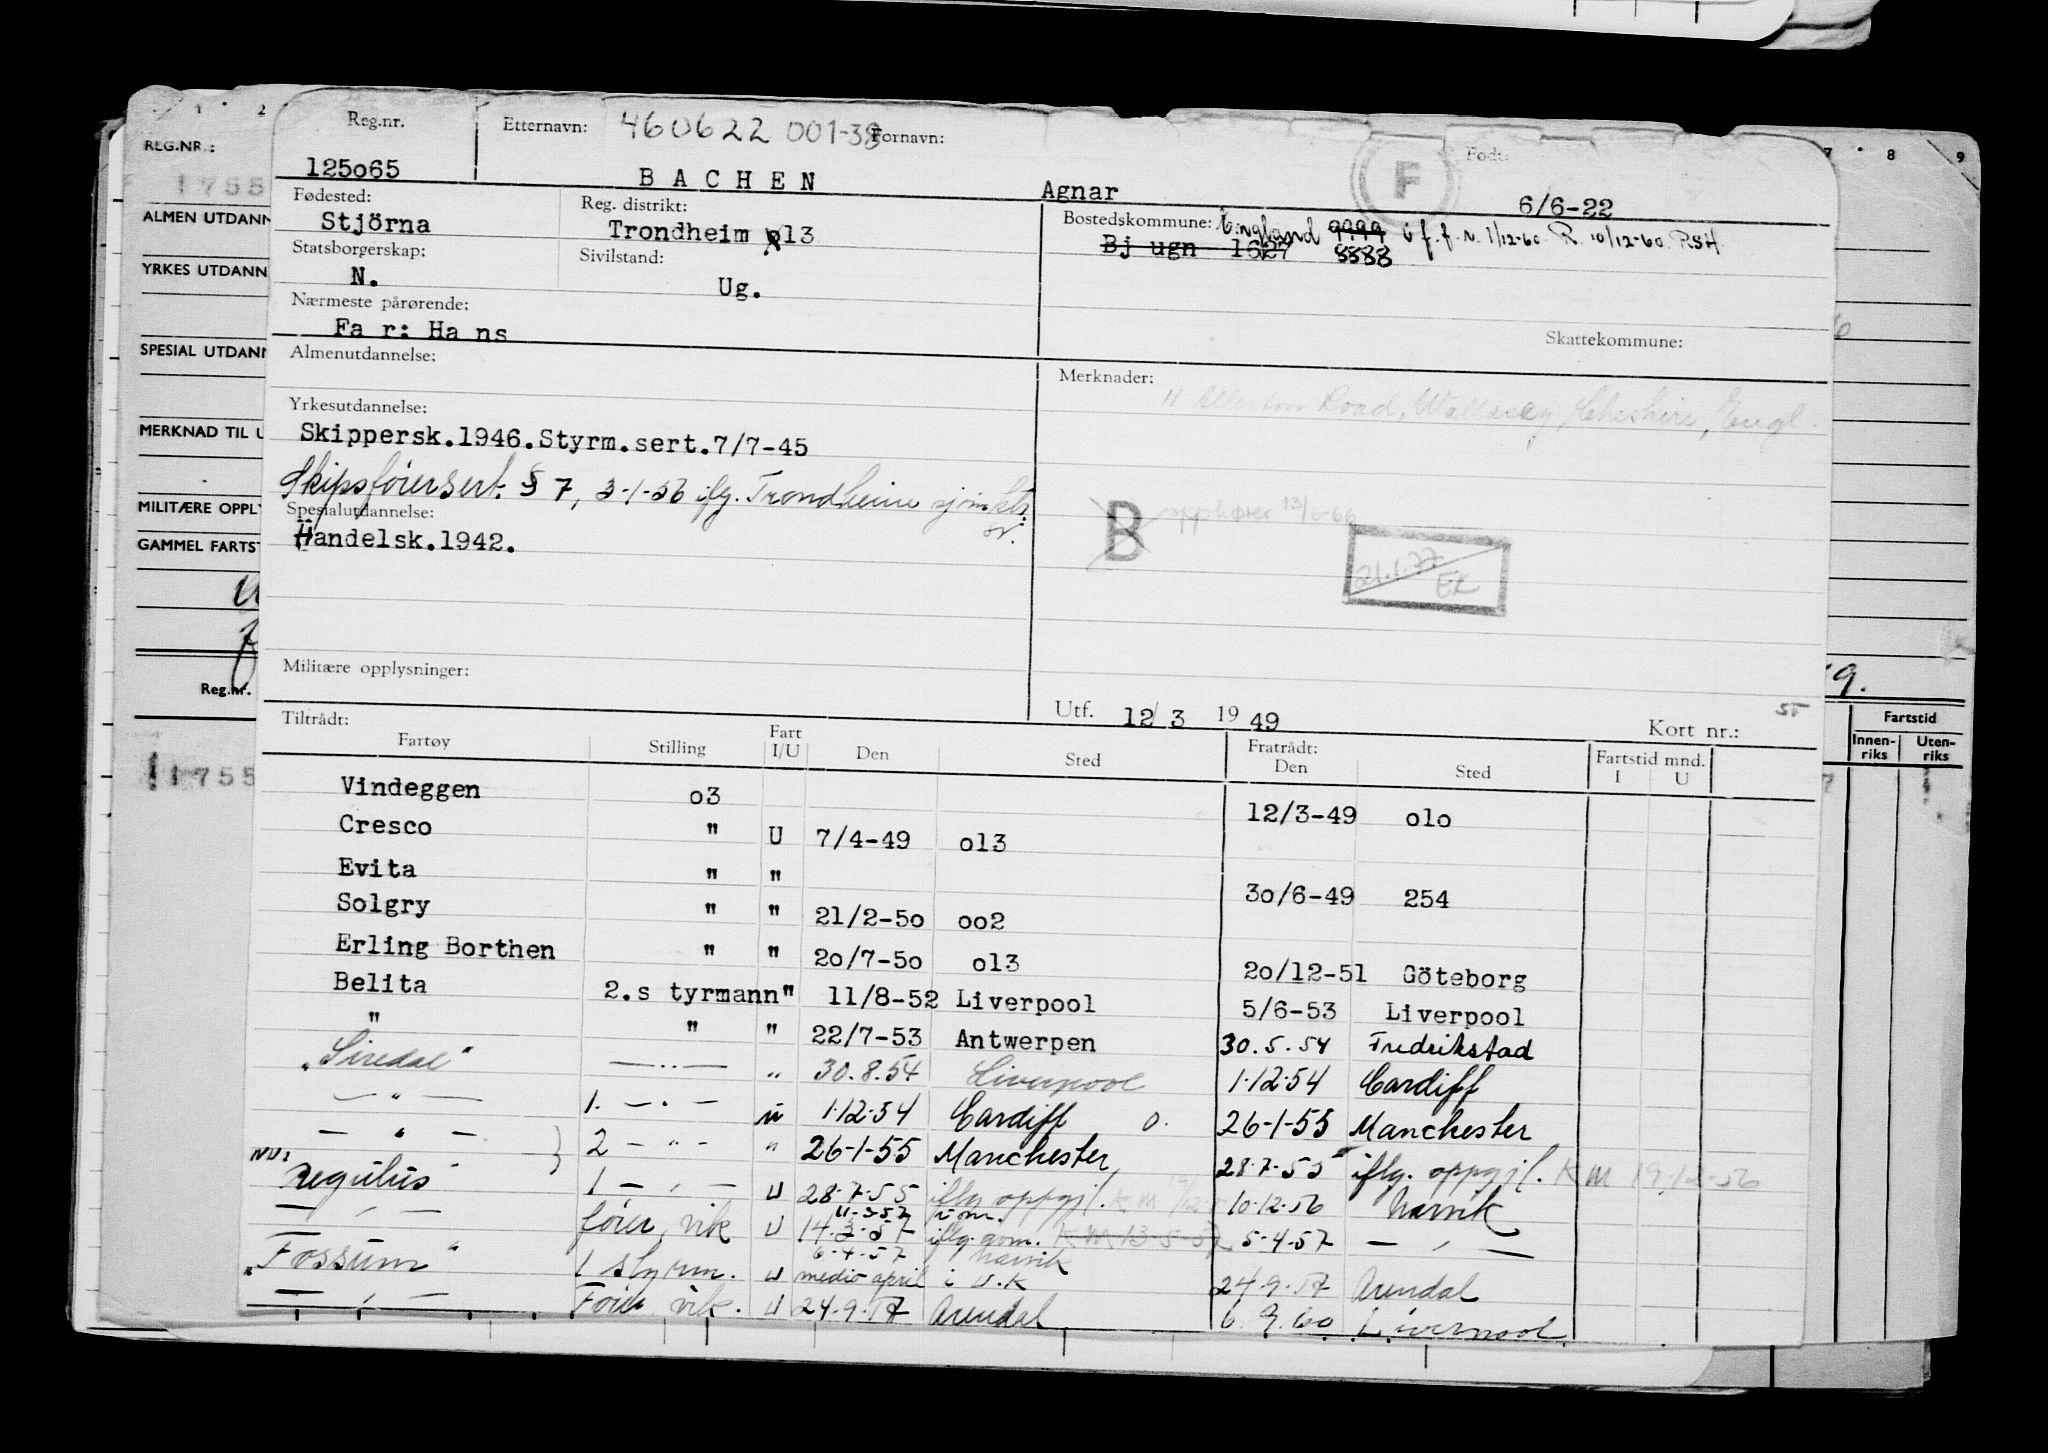 1 2 7 8 9
REG.NR.:
1755
ALMEN UTDANN
YRKES UTDANN
SPESIAL UTDANN
MERKNAD TIL U
MILITÆRE OPPLY
GAMMEL FARTST
Reg.nr.
1755
Reg.nr. Etternavn: 460622 001-38 Fornavn: F Født:
125o65 BACHEN Agnar 6/6-22
Fødested: Reg. distrikt: Bostedskommune: England 9999 i f.f. n. 1/12-60. R. 10/12-60. RSH.
Stjörna Trondheim o13 Bj ugn 1627 8888
Statsborgerskap: Sivilstand:
N. Ug.
Nærmeste pårørende:
Fa r: Ha ns Skattekommune:
Almenutdannelse: Merknader:
11 Road, Wallasey, Cheshire, Engl.
Yrkesutdannelse:
Skippersk.1946.Styrm.sert.7/7-45
Skipsførersert. § 7, 3-1-56 iflg. Trondheim
Spesialutdannelse: B opphører 13/6-66
Handelsk.1942. 21.1.77 EK
Militære opplysninger:
Utf. 12/3 1949 Kort nr.:
Tiltrådt: Fart Fratrådt: Fartstid mnd. Fartstid
Fartøy Stilling I/U Den Sted Den Sted I U Innen-riks Uten-riks
Vindeggen o3 12/3-49 olo
Cresco " U 7/4-49 o13
Evita " " 30/6-49 254
Solgry " " 21/2-5o oo2
Erling Borthen " " 2o/7-5o o13 2o/12-51 Göteborg
Belita 2.s tyrmann " 11/8-52 Liverpool 5/6-53 Liverpool
" " " 22/7-53 Antwerpen 30.5.54 Fredrikstad
"Siredal" — " — " 30.8.54 Liverpool 1.12.54 Cardiff
— " — 1. — " — u 1.12.54 Cardiff o. 26-1-55 Manchester
— " — 2 — " — " 26-1-55 Manchester 28.7.55 iflg. oppgjl. KM 19.12-56
Regulus" 1 — " — U 28.7.55 iflg oppgjl. KM 10.12.56 Narvik
— " — fører, vik U 14.3.57 11-3-57 iflg. KM 13-5-57 5-4-57 — " —
"Fossum" 1 styrm. U 6-4-57 Narvik medio april i U.K 24.9.57 Arendal
— " — Fører vik. U 24.9.57 Arendal 6.9.60 Liverpool